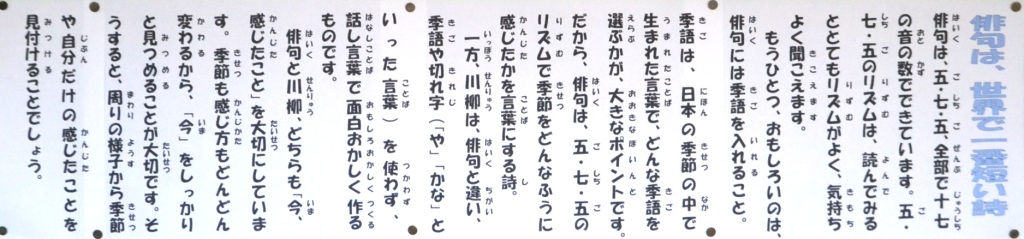 俳句は、世界で一番短い詩
俳句は、五・七・五、全部で十七
の音の数でできています。五・
七・五のリズムは、読んでみる
ととてもリズムがよく、気持ち
よく聞こえます。
もうひとつ、おもしろいのは、
俳句には季語を入れること。
季語は、日本の季節の中で
生まれた言葉で、どんな季語を
選ぶかが、大きなポイントです。
だから、俳句は、五・七・五の
リズムで季節をどんなふうに
感じたかを言葉にする詩。
一方、川柳は、俳句と違い、
季語や切れ字(「や」「かな」と
いった言葉)を使わず、
話し言葉で面白おかしく作る
ものです。
俳句と川柳、どちらも「今、
感じたこと」を大切にしていま
す。季節も感じ方もどんどん
変わるから、「今」をしっかり
と見つめることが大切です。そ
うすると、周りの様子から季節
や自分だけの感じたことを
見付けることでしょう。